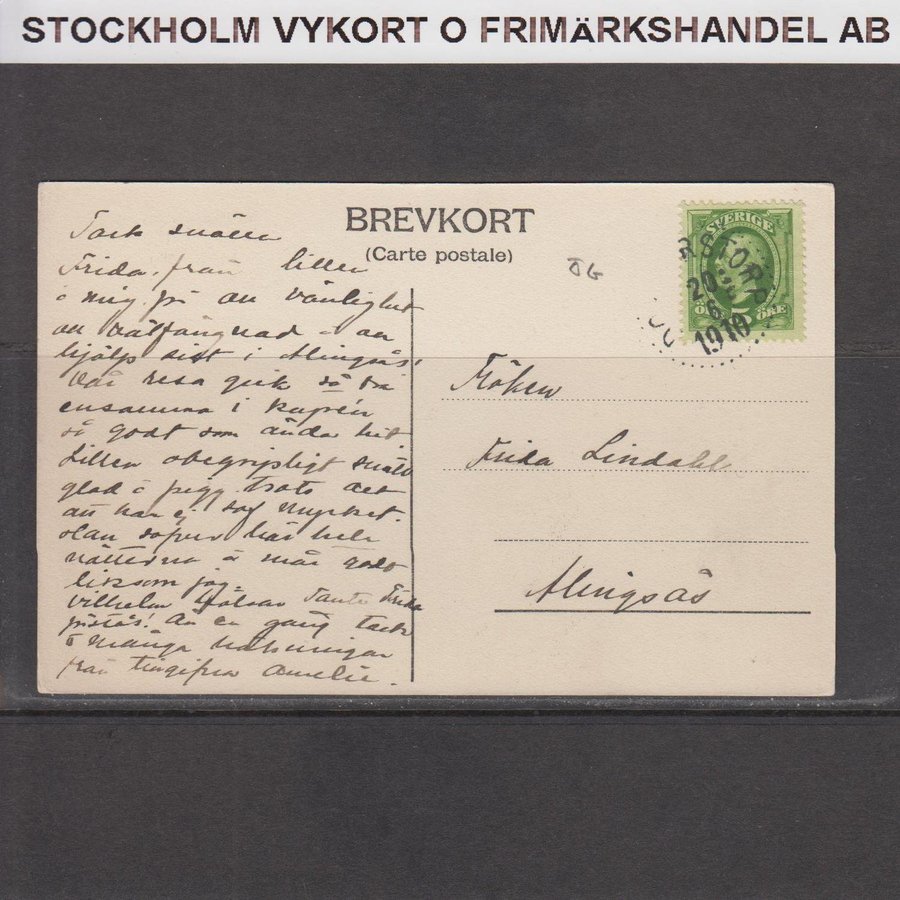 STOCKHOLM VYKORT O FRIMÄRKSHANDEL AB
BREVKORT
(Carte postale)
ÖG
SVERIGE
5
ÖRE
20
6
1910
Tack snälla
Frida, från lillen
o mig på all vänlighet
all välfägnad o all
hjälp sist i Alingsås!
Vår resa gick så bra
ensamma i kupén
så godt som ända hit
Lillen obegripligt snäll
glad o pigg trots det
att han ej sof mycket.
han sofver här hela
nätterna o mår godt
liksom jag.
Vilhelm hälsar Tante Frida
Än en gång tack
o många hälsningar
från Amelie.
Fröken
Frida Lindahl
Alingsås